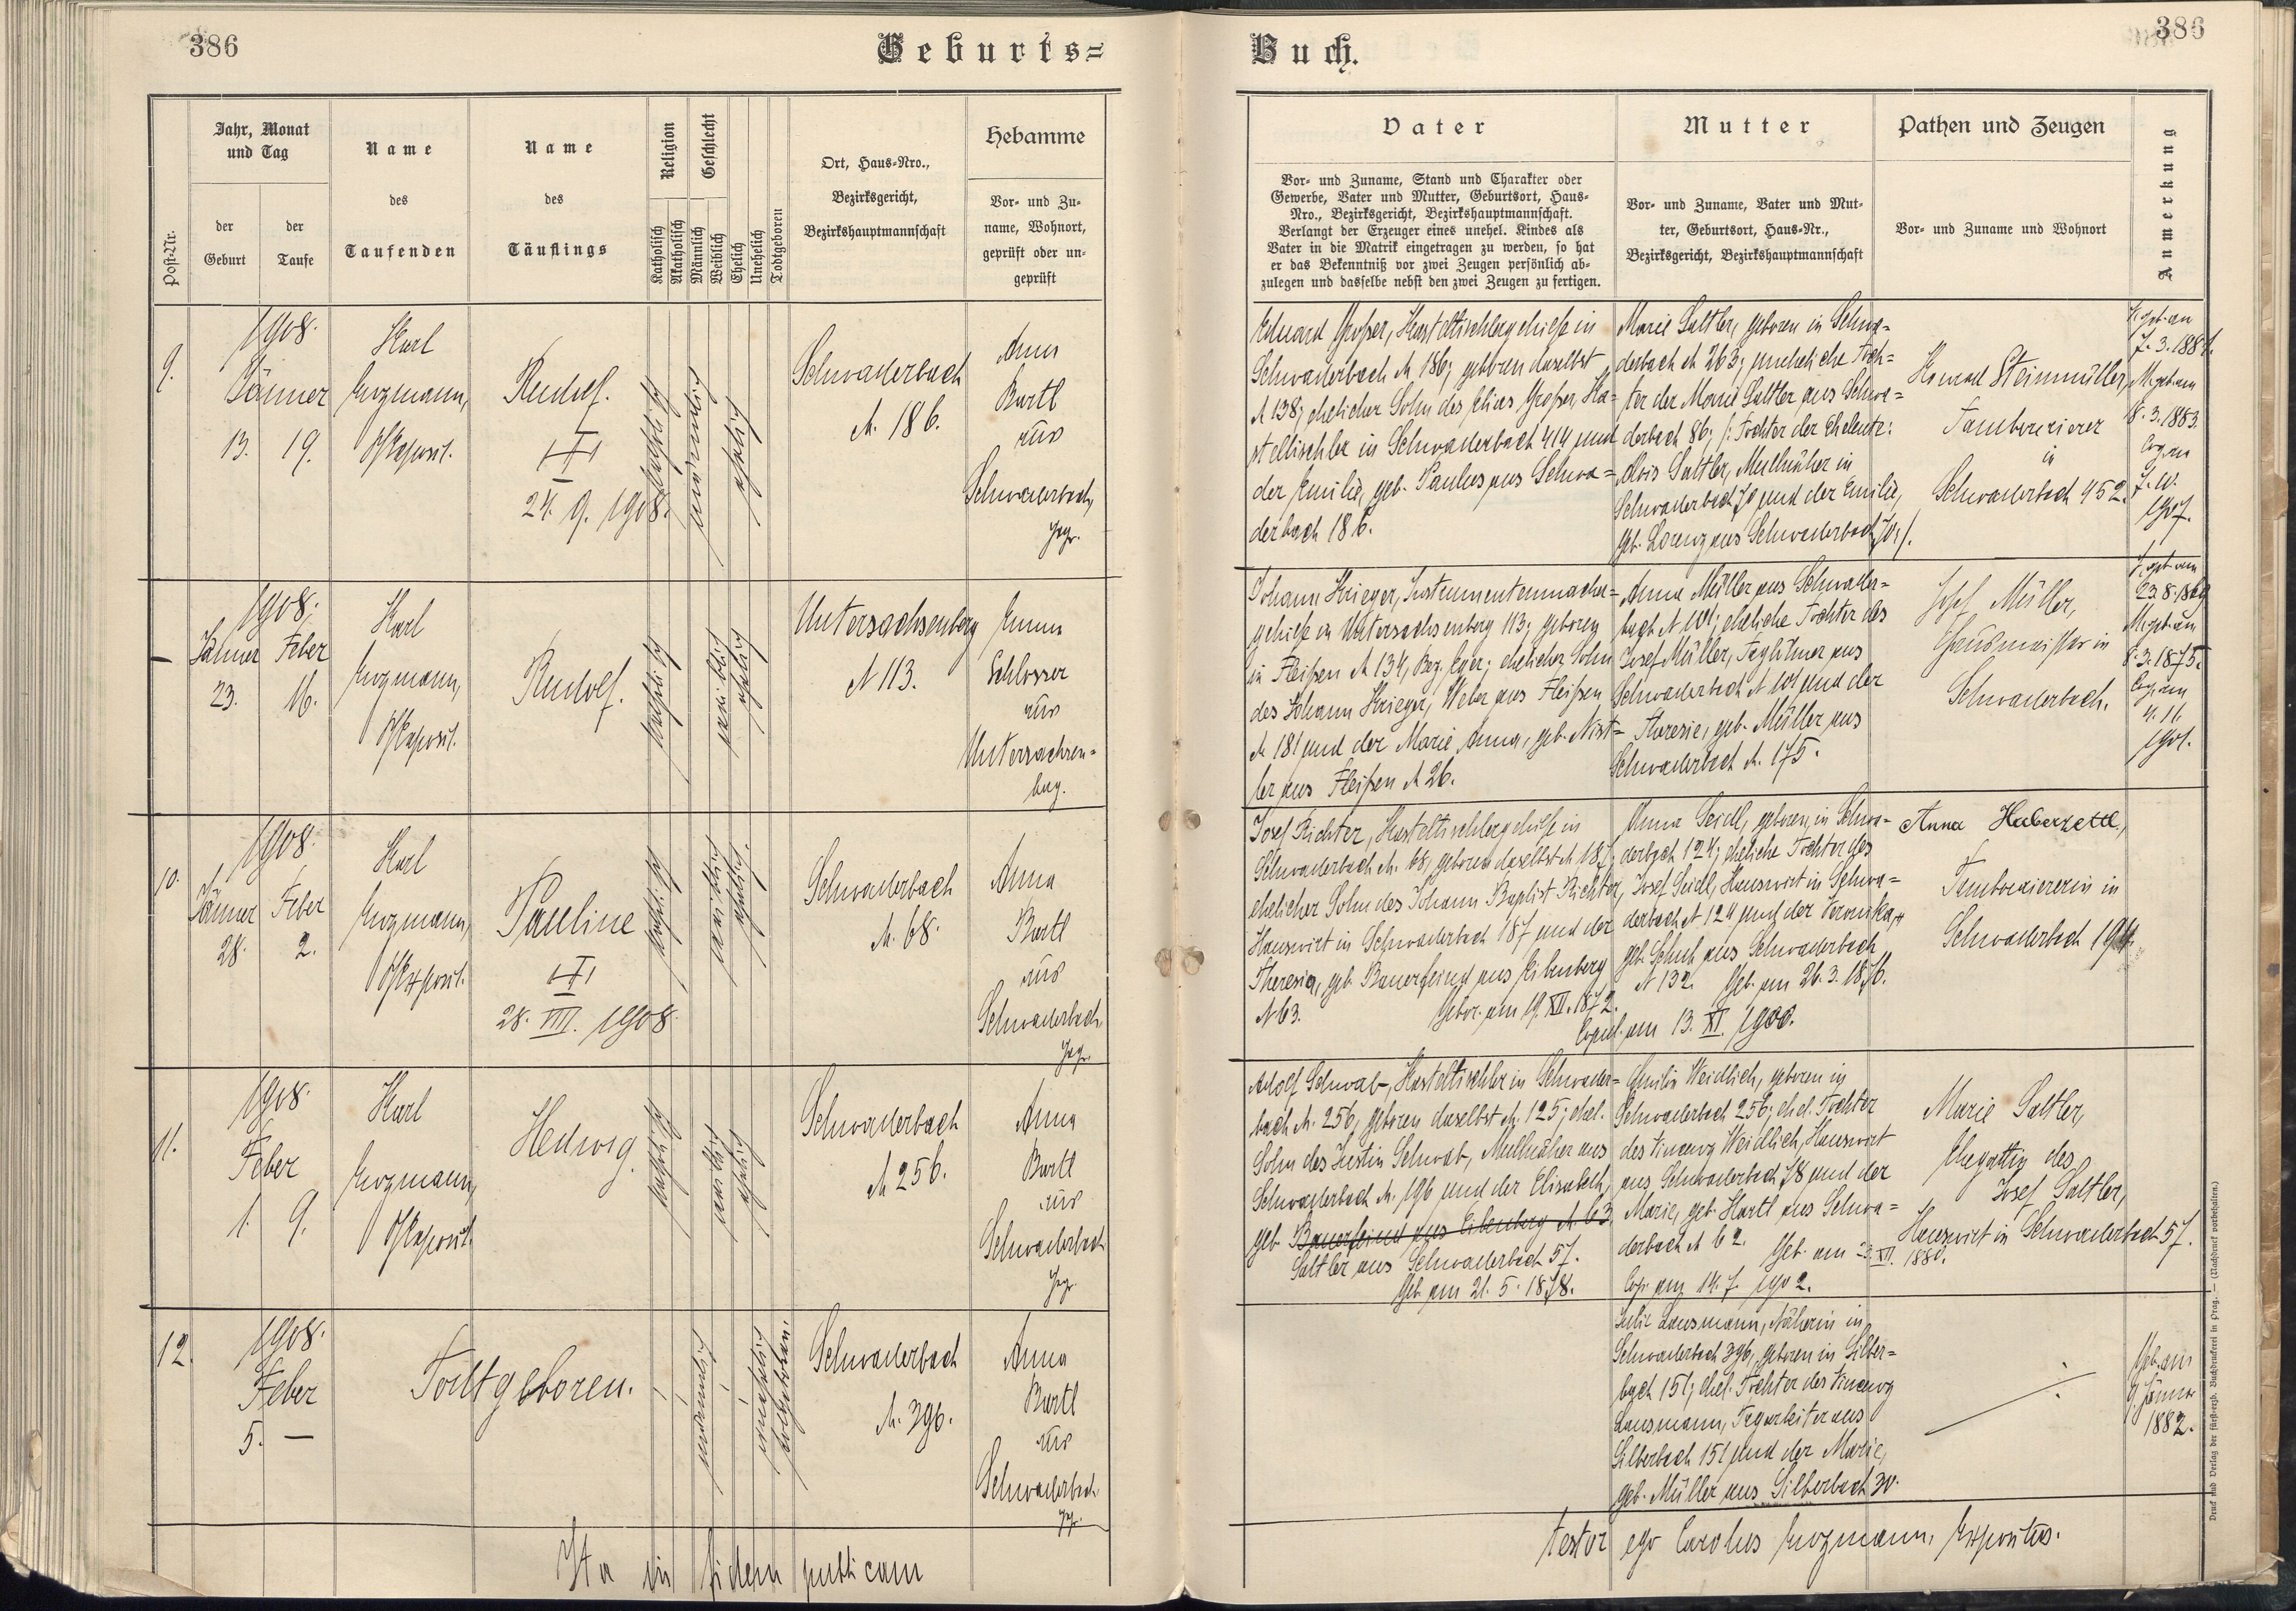 386
Geburts=
Post-Nr.
Jahr, Monat
und Tag
der
Geburt
der
Taufe
Name
des
Taufenden
Name
des
Täuflings
Religion
Katholisch
Akatholisch
Geschlecht
Männlich
Weiblich
Ehelich
Unehelich
Todtgeboren
Ort, Haus-Nro.,
Bezirksgericht,
Bezirkshauptmannschaft
Hebamme
Vor- und Zu-
name, Wohnort,
geprüft oder un-
geprüft
9.
1908.
Jänner
13. 19.
Karl
Exposit.
Rudolf.
24. 9. 1908.
katholisch
männlich
ehelich
Schwaderbach
N. 186.
Anna
Bartl
aus
Schwaderbach,
gepr.
1908;
Jänner Feber
23. 16.
Karl
Exposit.
Rudolf.
katholisch
ehelich
Untersachsenberg
N 113.
Emma
Schlosser
aus
Untersachsen=
berg.
10.
1908.
Jänner Feber
28. 2.
Karl
Exposit.
Pauline
28. VIII. 1908.
katholisch
weiblich
ehelich.
Schwaderbach
N. 68.
Anna
Bartl
aus
Schwaderbach,
gepr.
11.
1908.
Feber
1. 9.
Karl
Exposit.
Hedwig.
katholisch
weiblich
ehelich
Schwaderbach
N 256.
Anna
Bartl
aus
Schwaderbach
gepr.
12.
1908.
Feber
5. —
Todtgeboren.
unehelich
todtgeboren.
Schwaderbach
N. 396.
Anna
Bartl
aus
Schwaderbach
gepr.
Ita in fidem publicam
386
Buch.
Vater
Vor- und Zuname, Stand und Charakter oder
Gewerbe, Vater und Mutter, Geburtsort, Haus-
Nro., Bezirksgericht, Bezirkshauptmannschaft.
Verlangt der Erzeuger eines unehel. Kindes als
Vater in die Matrik eingetragen zu werden, so hat
er das Bekenntniß vor zwei Zeugen persönlich ab-
zulegen und dasselbe nebst den zwei Zeugen zu fertigen.
Mutter
Vor- und Zuname, Vater und Mut-
ter, Geburtsort, Haus-Nr.,
Bezirksgericht, Bezirkshauptmannschaft
Pathen und Zeugen
Vor- und Zuname und Wohnort
Anmerkung
Eduard Großer, Kasteltischlergehilfe in
Schwaderbach N 186; geboren daselbst
N 138; ehelicher Sohn des Elias Großer, Ka=
steltischler in Schwaderbach 414 und
der Emilie, geb. Paulus aus Schwa=
derbach 186.
Marie Sattler, geboren in Schwa=
derbach N 263; uneheliche Toch=
ter der Marie Sattler aus Schwa=
derbach 86; /: Tochter der Eheleute:
Alois Sattler, Mullnäher in
Schwaderbach 70 und der Emilie,
geb. Lorenz aus Schwaderbach 70 :/.
Konrad Steinmüller,
Tambourierer
in
Schwaderbach 452.
V. geb. am
M. geb. am
8. 3. 1883.
Cop. am
1907.
Johann Krieger, Instrumentenmacher=
gehilfe in Untersachsenberg 113; geboren
in Fleißen N 134, Bez. Eger; ehelicher Sohn
des Johann Krieger, Weber aus Fleißen
N 181 und der Marie Anna, geb. Nist=
ler aus Fleißen N 26.
Anna Müller aus Schwader=
bach N 101; eheliche Tochter des
Josef Müller, Taglöhner aus
Schwaderbach N 101 und der
Theresie, geb. Müller aus
Schwaderbach N. 175.
Josef Müller,
Hausmeister in
Schwaderbach.
V. geb. am
23. 8. 1869
M. geb. am
8. 3. 1875.
Cop. am
4. 11.
1901.
Josef Richter, Kasteltischlergehilfe in
Schwaderbach N. 68, geboren daselbst N 187;
ehelicher Sohn des Johann Baptist Richter,
Hauswirt in Schwaderbach 187 und der
Theresia, geb. Bauerfeind aus Eibenberg
N 63.
Gebor. am 19. XII. 1872.
Anna Seidl, geboren in Schwa-
derbach 124; eheliche Tochter des
Josef Seidl, Hauswirt in Schwa=
derbach N 124 und der Veronika,
geb. Schuh aus Schwaderbach
N 132. Geb. am 26. 3. 1876.
Copul. am 13. XI. 1900.
Anna Haberzettl,
Tambouriererin in
Schwaderbach
Adolf Schwab, Kasteltischler in Schwader=
bach N. 256, geboren daselbst N. 125; ehel.
Sohn des Justin Schwab, Mullnäher aus
Schwaderbach N. 196 und der Elisabeth,
geb. Bauerfeind aus Eibenberg N. 63.
Sattler aus Schwaderbach 57.
Geb. am 21. 5. 1878.
Emilie Weidlich, geboren in
Schwaderbach 256; ehel. Tochter
des Vincenz Weidlich, Hauswirt
aus Schwaderbach 78 und der
Marie, geb. Hartl aus Schwa=
derbach N 62. Geb. am 23. XII. 1880.
Cop. am 14. 7. 1902.
Marie Sattler,
Ehegattin des
Josef Sattler,
Hauswirt in Schwaderbach 57.
Julie Lausmann, Näherin in
Schwaderbach 396, geboren in Silber=
bach 151; ehel. Tochter des Vincenz
Lausmann, Tagarbeiter aus
Silberbach 151 und der Marie,
geb. Müller aus Silberbach 30.
Geb. am
9. Jänner
1882.
testor ego Carolus Expositus.
Druck und Verlag der fürst-erzb. Buchdruckerei in Prag. — (Nachdruck vorbehalten.)